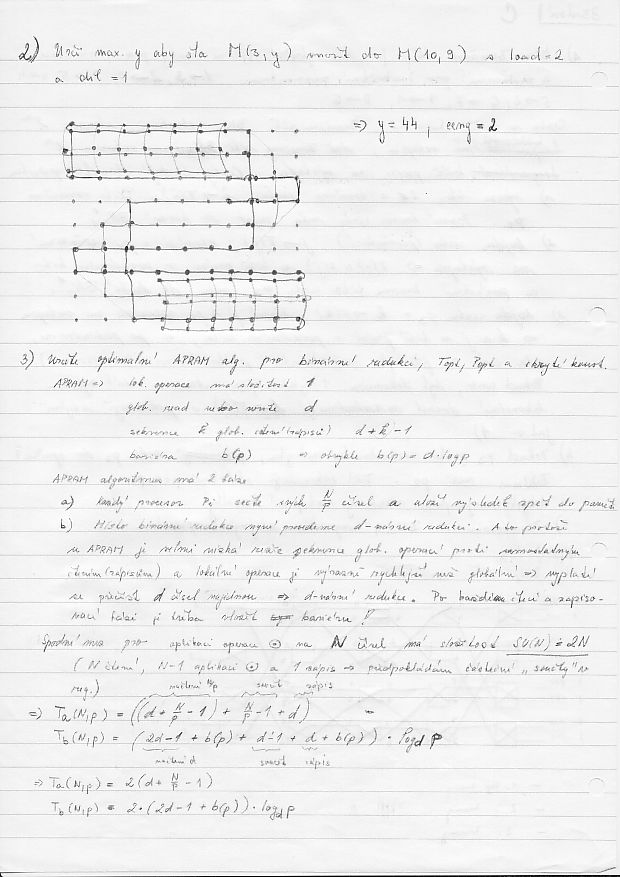 2) Urči max. y aby šla M(3,y) vnořit do M(10,9) s load=2
a dil=1
⇒ y=44, ecng=2
3) Určete optimální APRAM alg. pro binární redukci, Topt, Popt a skryté konst.
APRAM ⇒ lok. operace má složitost 1
glob. read nebo write d
sekvence k glob. čtení (zápisů) d+k-1
bariéra b(p) ⇒ obvykle b(p)=d·log p
APRAM algoritmus má 2 fáze
a) každý procesor Pi sečte svých N/p čísel a uloží výsledek zpět do paměti
b) Místo binární redukce nyní provedeme d-nární redukci. A to protože
u APRAM je velmi nízká režie sekvence glob. operací proti samostatným
čtením (zápisům) a lokální operace je výrazně rychlejší než globální ⇒ vyplatí
se přečíst d čísel najednou ⇒ d-nární redukce. Po každém čtecí a zapiso-
vací fázi je třeba vložit bariéru!
Spodní mez pro aplikaci operace ⊙ na N čísel má složitost SU(N) = 2N
(N čtení, N-1 aplikací ⊙ a 1 zápis ⇒ předpokládám částečné „součty" v
reg.)
načtení N/p součet zápis
⇒ Ta(N,p) = ((d + N/p - 1) + N/p - 1 + d)
Tb(N,p) = (2d-1 + b(p) + d-1 + d + b(p)) · log_d p
načtení d součet zápis
⇒ Ta(N,p) = 2(d + N/p - 1)
Tb(N,p) = 2·(2d-1 + b(p)) · log_d p